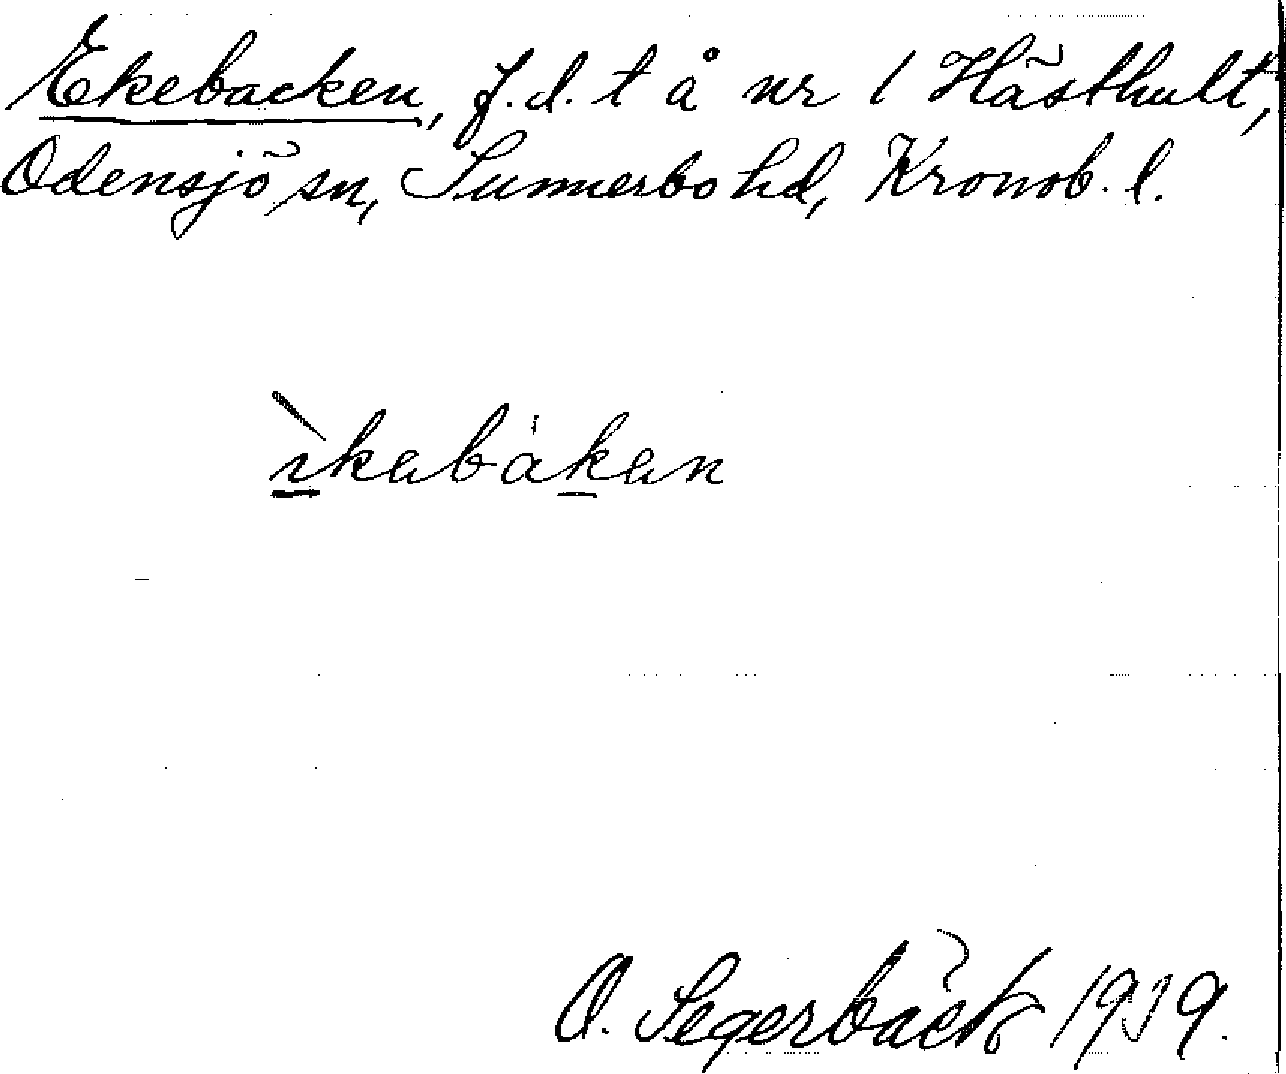 Ekebacken, f.d. t å nr 1 Hästhult,
Odensjö sn, Sunnerbo hd, Kronob. l.
ìkabakan
O. Segerbäck 1939.